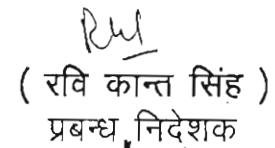 ( रवि कान्त सिंह )
प्रबन्ध निदेशक